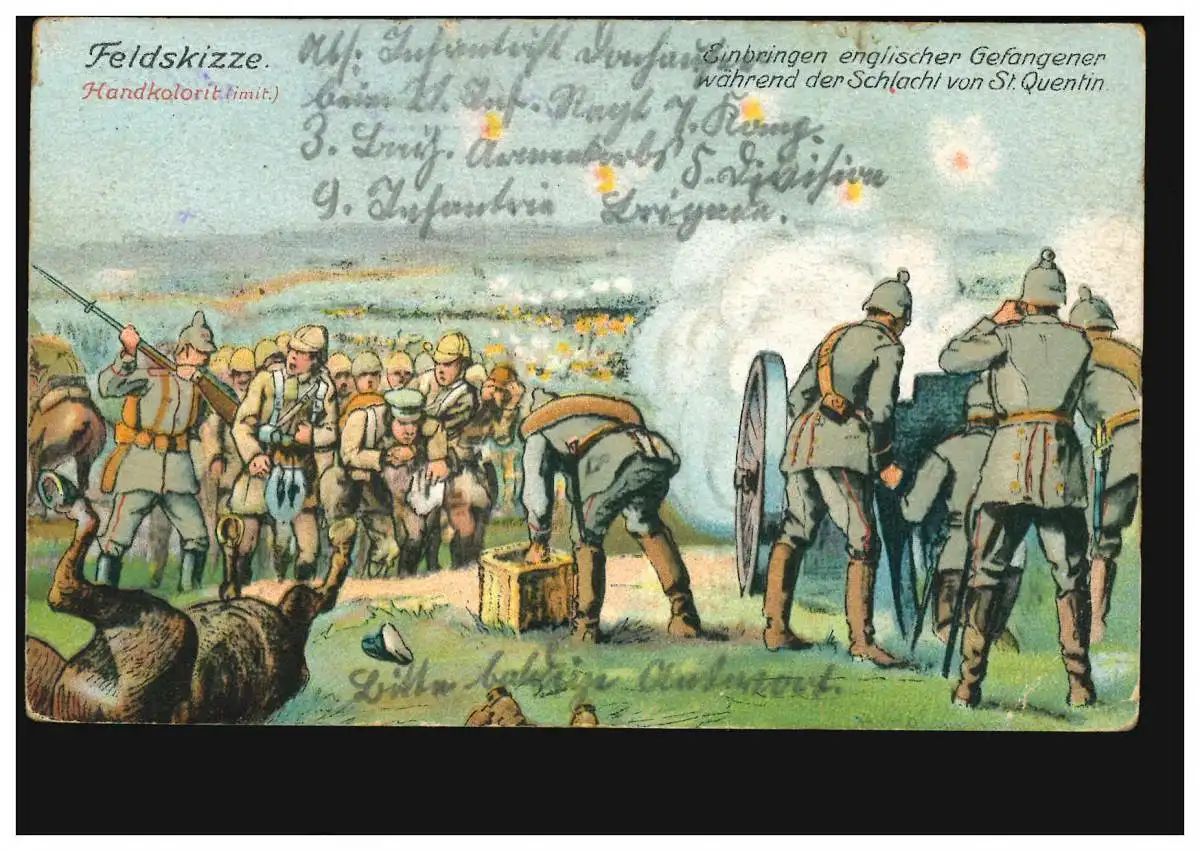 Feldskizze.
Handkolorit (imit.)
Einbringen englischer Gefangener
während der Schlacht von St. Quentin.
Abs: Infantrist
beim 21. Inf. Regt 7. Komp.
3. Armeekorbs 5. Division
9. Infantrie Brigade.
Bitte baldige Antwort.